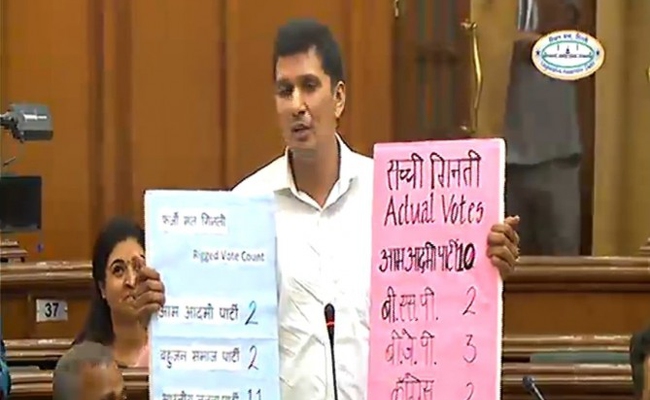 फर्जी मत गिनती
Rigged Vote Count
आम आदमी पार्टी 2
बहुजन समाज पार्टी 2
भारतीय जनता पार्टी 11
सच्ची गिनती
Actual Votes
आम आदमी पार्टी 10
बी.एस.पी. 2
बी.जे.पी. 3
काँग्रेस 2
37